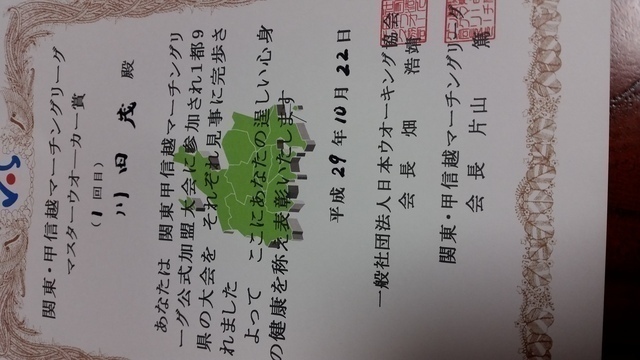 関東・甲信越マーチングリーグ
マスターウオーカー賞
(1回目)
川田 茂 殿
あなたは 関東甲信越マーチングリ
ーグ公式加盟大会に参加され1都9
県の大会を それぞれ見事に完歩さ
れました
よって ここにあなたの逞しい心身
の健康を称え表彰いたします
平成29年10月22日
一般社団法人日本ウオーキング協会
会長 畑 浩靖
関東・甲信越マーチングリーグ
会長 片山 篤